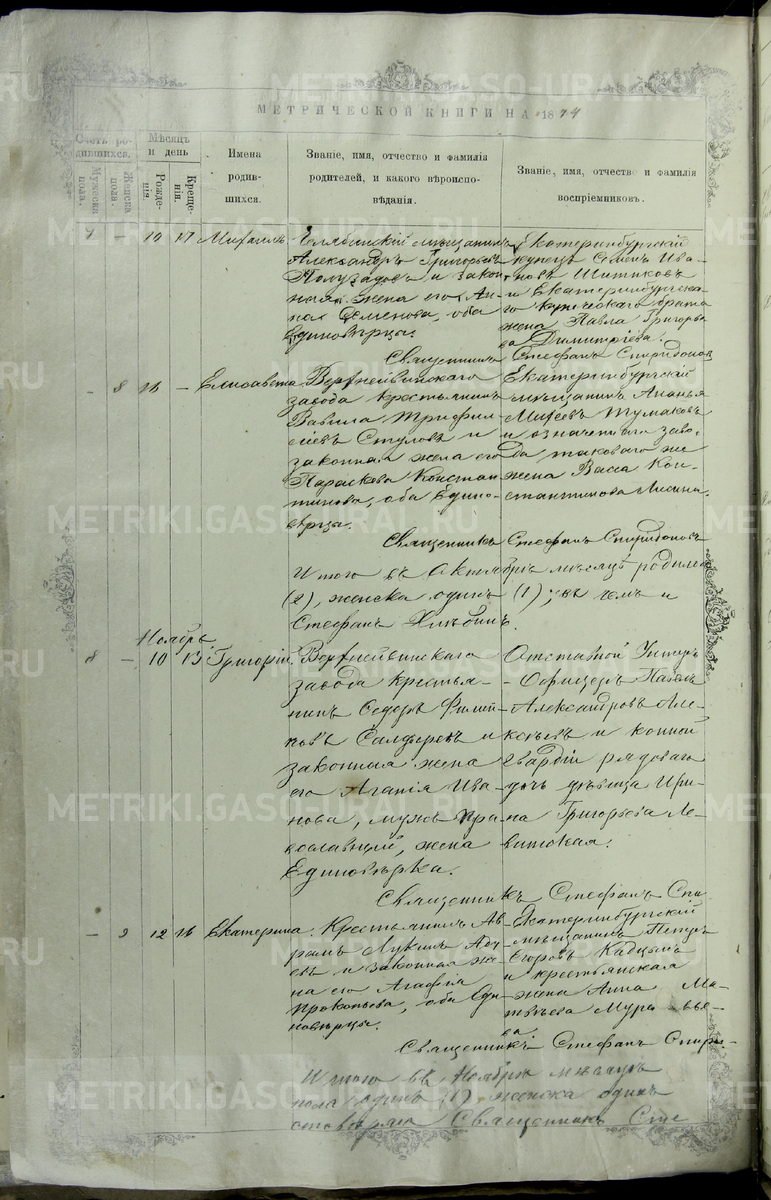 МЕТРИЧЕСКОЙ КНИГИ НА 1874
Счетъ родившихся.
Мужеска пола.
Женска пола.
Мѣсяцъ и день
Рожденія.
Крещенія.
Имена родившихся.
Званіе, имя, отчество и фамилія родителей, и какого вѣроисповѣданія.
Званіе, имя, отчество и фамилія воспріемниковъ.
7 — 10 17 Михаилъ.
Челябинскій мѣщанинъ
Александръ Григорьевъ
Полузадовъ и закон-
ная жена его Ан-
на Семенова, оба
Единовѣрцы.
Екатеринбургскій
купецъ Семенъ Ива-
новъ Шитиковъ
и Екатеринбургска-
го купеческаго брата
жена Павла Григорье-
ва Димитріева.
Священникъ Стефанъ Спиридоновъ
— 8 —
Елисавета
Верхнейвинскаго
завода крестьянинъ
Вавила Трифил-
іевъ Стуловъ и
законная жена его
Параскева Констан-
тинова, оба Едино-
вѣрцы.
Екатеринбургскій
мѣщанинъ Ананья
Михеевъ Тумаковъ
и означеннаго заво-
да таковаго же
жена Васса Кон-
стантинова Лисина.
Священникъ Стефанъ Спиридоновъ
Итого въ Октябрѣ мѣсяцѣ родилось
(2), женска одинъ (1); въ чемъ и
Стефанъ
Ноябрь
8 — 10 13 Григорій.
Верхнейвинскаго
завода крестья-
нинъ Ѳедоръ Филип-
повъ Салдыревъ и
законная жена
его Агапія Ива-
нова, мужъ пра-
вославный, жена
Единовѣрка.
Отставной Унтеръ
-Офицеръ Павелъ
Александровъ Але-
ксѣевъ и конной
гвардіи рядоваго
дочь дѣвица Ири-
на Григорьева Ле-
витская.
Священникъ Стефанъ Спи
— 9 12
Екатерина.
Крестьянинъ Ав-
рамъ Лукинъ
и законная же-
на его Агафія
Прокопьева, оба Еди-
новѣрцы.
Екатеринбургскій
мѣщанинъ Петръ
Егоровъ
и крестьянская
жена Анна Ма-
твѣева Муравьева.
Священникъ Стефанъ Спири-
Итого въ Ноябрѣ мѣсяцѣ
пола одинъ (1), женска одинъ
Священникъ Сте
METRIKI.GASO-URAL.RU